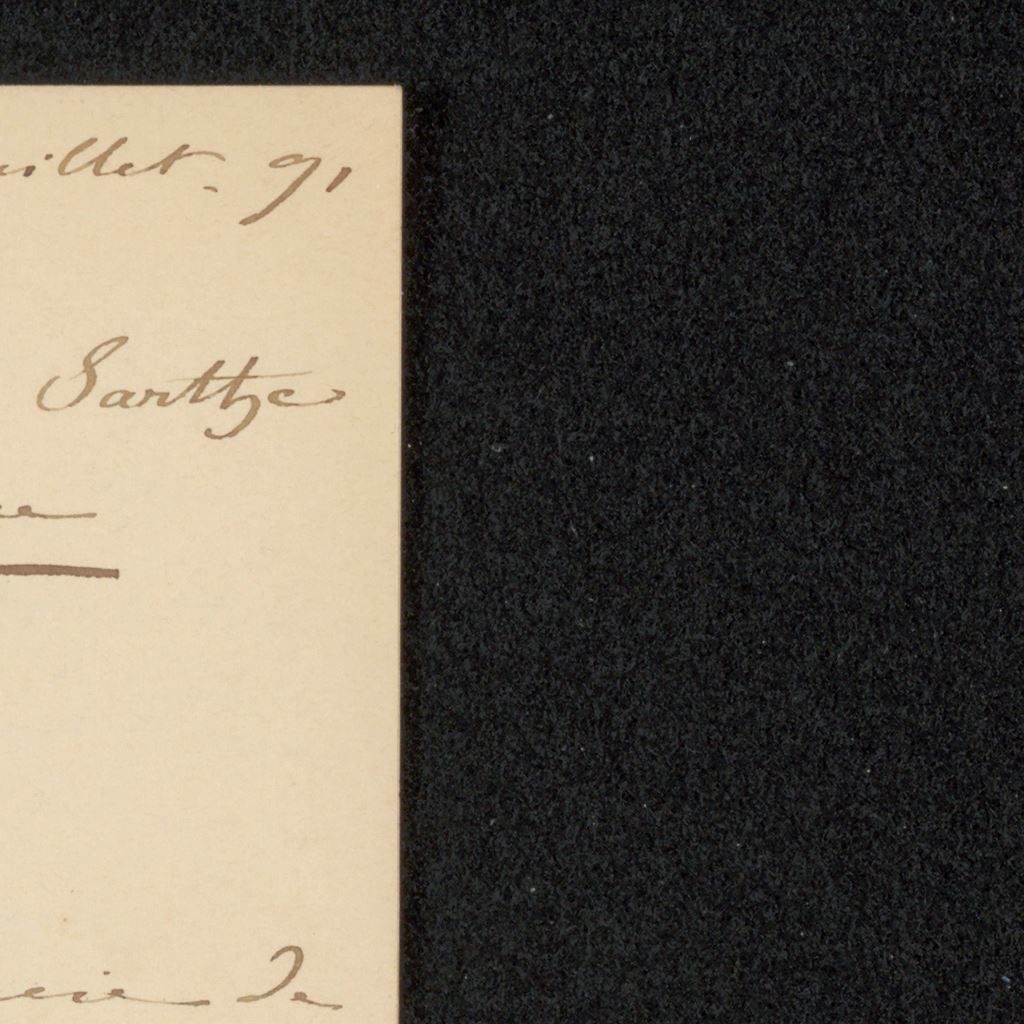 uillet. 91
Sarthe
de